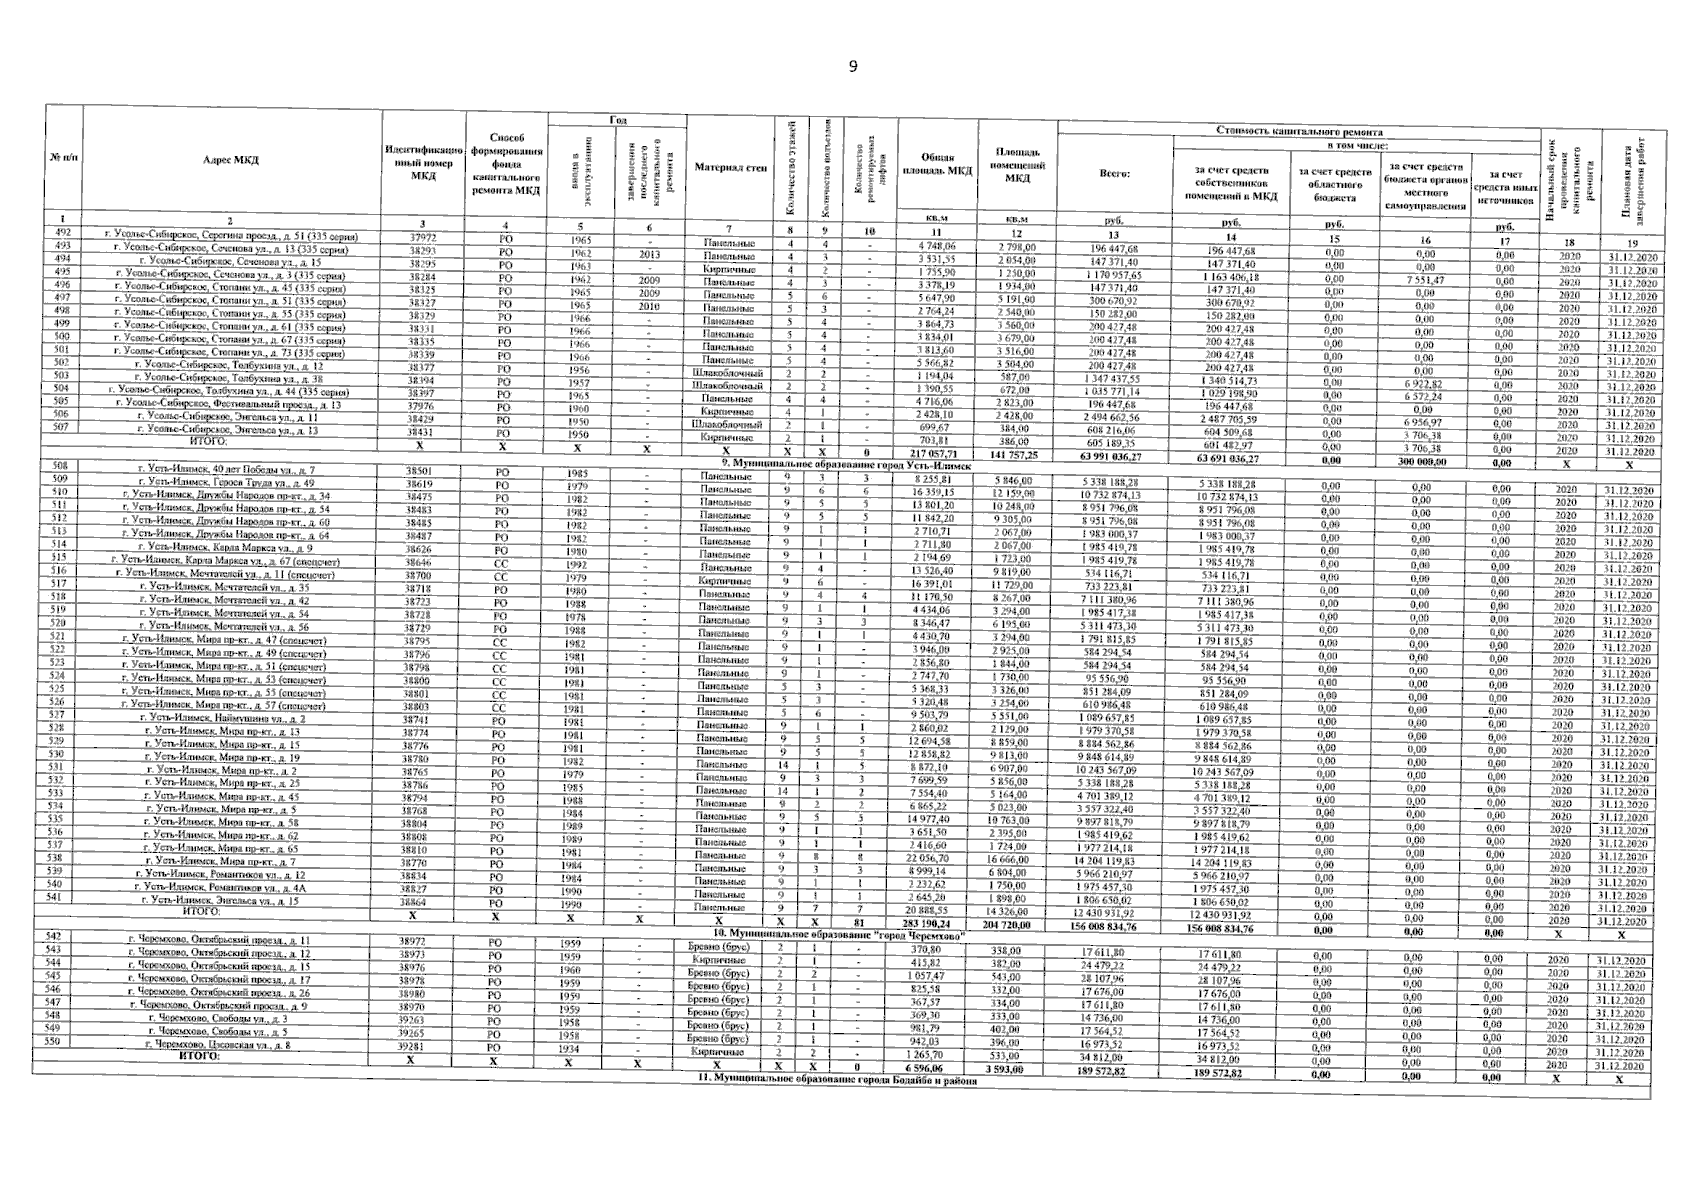 9
№ п/п Адрес МКД Идентификацио нный номер МКД Способ формирования фонда капитального ремонта МКД Год Материал стен Количество этажей Количество подъездов Количество ремонтируемых лифтов Общая площадь МКД Площадь помещений МКД Стоимость капитального ремонта Начальный срок проведения капитального ремонта Плановая дата завершения работ
ввода в эксплуатацию завершения последнего капитального ремонта Всего: в том числе:
за счет средств собственников помещений в МКД за счет средств областного бюджета за счет средств бюджета органов местного самоуправления за счет средств иных источников
кв.м кв.м руб. руб. руб. руб.
1 2 3 4 5 6 7 8 9 10 11 12 13 14 15 16 17 18 19
492 г. Усолье-Сибирское, Серегина проезд., д. 51 (335 серия) 37972 РО 1965 - Панельные 4 4 - 4 748,06 2 798,00 196 447,68 196 447,68 0,00 0,00 0,00 2020 31.12.2020
493 г. Усолье-Сибирское, Сеченова ул., д. 13 (335 серия) 38293 РО 1962 2013 Панельные 4 3 - 3 531,55 2 054,00 147 371,40 147 371,40 0,00 0,00 0,00 2020 31.12.2020
494 г. Усолье-Сибирское, Сеченова ул., д. 15 38295 РО 1963 - Кирпичные 4 2 - 1 755,90 1 250,00 1 170 957,65 1 163 406,18 0,00 7 551,47 0,00 2020 31.12.2020
495 г. Усолье-Сибирское, Сеченова ул., д. 3 (335 серия) 38284 РО 1962 2009 Панельные 4 3 - 3 378,19 1 934,00 147 371,40 147 371,40 0,00 0,00 0,00 2020 31.12.2020
496 г. Усолье-Сибирское, Стопани ул., д. 45 (335 серия) 38325 РО 1965 2009 Панельные 5 6 - 5 647,90 5 191,90 300 670,92 300 670,92 0,00 0,00 0,00 2020 31.12.2020
497 г. Усолье-Сибирское, Стопани ул., д. 51 (335 серия) 38327 РО 1965 2010 Панельные 5 3 - 2 764,24 2 540,00 150 282,00 150 282,00 0,00 0,00 0,00 2020 31.12.2020
498 г. Усолье-Сибирское, Стопани ул., д. 55 (335 серия) 38329 РО 1966 - Панельные 5 4 - 3 864,73 3 560,00 200 427,48 200 427,48 0,00 0,00 0,00 2020 31.12.2020
499 г. Усолье-Сибирское, Стопани ул., д. 61 (335 серия) 38331 РО 1966 - Панельные 5 4 - 3 834,01 3 679,00 200 427,48 200 427,48 0,00 0,00 0,00 2020 31.12.2020
500 г. Усолье-Сибирское, Стопани ул., д. 67 (335 серия) 38335 РО 1966 - Панельные 5 4 - 3 813,60 3 516,00 200 427,48 200 427,48 0,00 0,00 0,00 2020 31.12.2020
501 г. Усолье-Сибирское, Стопани ул., д. 73 (335 серия) 38339 РО 1966 - Панельные 5 4 - 5 566,82 3 504,00 200 427,48 200 427,48 0,00 0,00 0,00 2020 31.12.2020
502 г. Усолье-Сибирское, Толбухина ул., д. 12 38377 РО 1956 - Шлакоблочный 2 2 - 1 194,04 587,00 1 347 437,55 1 340 514,73 0,00 6 922,82 0,00 2020 31.12.2020
503 г. Усолье-Сибирское, Толбухина ул., д. 38 38394 РО 1957 - Шлакоблочный 2 2 - 1 390,55 672,00 1 035 771,14 1 029 198,90 0,00 6 572,24 0,00 2020 31.12.2020
504 г. Усолье-Сибирское, Толбухина ул., д. 44 (335 серия) 38397 РО 1965 - Панельные 4 4 - 4 716,06 2 823,00 196 447,68 196 447,68 0,00 0,00 0,00 2020 31.12.2020
505 г. Усолье-Сибирское, Фестивальный проезд., д. 13 37976 РО 1960 - Кирпичные 4 1 - 2 428,10 2 428,00 2 494 662,56 2 487 705,59 0,00 6 956,97 0,00 2020 31.12.2020
506 г. Усолье-Сибирское, Энгельса ул., д. 11 38429 РО 1950 - Шлакоблочный 2 1 - 699,67 384,00 608 216,06 604 509,68 0,00 3 706,38 0,00 2020 31.12.2020
507 г. Усолье-Сибирское, Энгельса ул., д. 13 38431 РО 1950 - Кирпичные 2 1 - 703,81 386,00 605 189,35 601 482,97 0,00 3 706,38 0,00 2020 31.12.2020
ИТОГО: Х Х Х Х Х Х Х 0 217 057,71 141 757,25 63 991 036,27 63 691 036,27 0,00 300 000,00 0,00 Х Х
9. Муниципальное образование город Усть-Илимск
508 г. Усть-Илимск, 40 лет Победы ул., д. 7 38501 РО 1985 - Панельные 9 3 3 8 255,81 5 846,00 5 338 188,28 5 338 188,28 0,00 0,00 0,00 2020 31.12.2020
509 г. Усть-Илимск, Героев Труда ул., д. 49 38619 РО 1979 - Панельные 9 6 6 16 359,15 12 159,00 10 732 874,13 10 732 874,13 0,00 0,00 0,00 2020 31.12.2020
510 г. Усть-Илимск, Дружбы Народов пр-кт., д. 34 38475 РО 1982 - Панельные 9 5 5 13 801,20 10 248,00 8 951 796,08 8 951 796,08 0,00 0,00 0,00 2020 31.12.2020
511 г. Усть-Илимск, Дружбы Народов пр-кт., д. 54 38483 РО 1982 - Панельные 9 5 5 11 842,20 9 305,00 8 951 796,08 8 951 796,08 0,00 0,00 0,00 2020 31.12.2020
512 г. Усть-Илимск, Дружбы Народов пр-кт., д. 60 38485 РО 1982 - Панельные 9 1 1 2 710,71 2 067,00 1 983 000,37 1 983 000,37 0,00 0,00 0,00 2020 31.12.2020
513 г. Усть-Илимск, Дружбы Народов пр-кт., д. 64 38487 РО 1982 - Панельные 9 1 1 2 711,80 2 067,00 1 985 419,78 1 985 419,78 0,00 0,00 0,00 2020 31.12.2020
514 г. Усть-Илимск, Карла Маркса ул., д. 9 38626 РО 1980 - Панельные 9 1 1 2 194,69 1 723,00 1 985 419,78 1 985 419,78 0,00 0,00 0,00 2020 31.12.2020
515 г. Усть-Илимск, Карла Маркса ул., д. 67 (спецсчет) 38646 СС 1992 - Панельные 9 4 - 13 526,40 9 819,00 534 116,71 534 116,71 0,00 0,00 0,00 2020 31.12.2020
516 г. Усть-Илимск, Мечтателей ул., д. 11 (спецсчет) 38700 СС 1979 - Кирпичные 9 6 - 16 391,01 11 729,00 733 223,81 733 223,81 0,00 0,00 0,00 2020 31.12.2020
517 г. Усть-Илимск, Мечтателей ул., д. 35 38718 РО 1980 - Панельные 9 4 4 11 170,50 8 267,00 7 111 380,96 7 111 380,96 0,00 0,00 0,00 2020 31.12.2020
518 г. Усть-Илимск, Мечтателей ул., д. 42 38723 РО 1988 - Панельные 9 1 1 4 434,06 3 294,00 1 985 417,38 1 985 417,38 0,00 0,00 0,00 2020 31.12.2020
519 г. Усть-Илимск, Мечтателей ул., д. 54 38728 РО 1978 - Панельные 9 3 3 8 346,47 6 195,00 5 311 473,30 5 311 473,30 0,00 0,00 0,00 2020 31.12.2020
520 г. Усть-Илимск, Мечтателей ул., д. 56 38729 РО 1988 - Панельные 9 1 1 4 430,70 3 294,00 1 791 815,85 1 791 815,85 0,00 0,00 0,00 2020 31.12.2020
521 г. Усть-Илимск, Мира пр-кт., д. 47 (спецсчет) 38795 СС 1982 - Панельные 9 1 - 3 946,00 2 925,00 584 294,54 584 294,54 0,00 0,00 0,00 2020 31.12.2020
522 г. Усть-Илимск, Мира пр-кт., д. 49 (спецсчет) 38796 СС 1981 - Панельные 9 1 - 2 856,80 1 844,00 584 294,54 584 294,54 0,00 0,00 0,00 2020 31.12.2020
523 г. Усть-Илимск, Мира пр-кт., д. 51 (спецсчет) 38798 СС 1981 - Панельные 9 1 - 2 747,70 1 730,00 95 556,90 95 556,90 0,00 0,00 0,00 2020 31.12.2020
524 г. Усть-Илимск, Мира пр-кт., д. 53 (спецсчет) 38800 СС 1981 - Панельные 5 3 - 5 368,33 3 326,00 851 284,09 851 284,09 0,00 0,00 0,00 2020 31.12.2020
525 г. Усть-Илимск, Мира пр-кт., д. 55 (спецсчет) 38801 СС 1981 - Панельные 5 3 - 5 320,48 3 254,00 610 986,48 610 986,48 0,00 0,00 0,00 2020 31.12.2020
526 г. Усть-Илимск, Мира пр-кт., д. 57 (спецсчет) 38803 СС 1981 - Панельные 5 6 - 9 503,79 5 551,00 1 089 657,85 1 089 657,85 0,00 0,00 0,00 2020 31.12.2020
527 г. Усть-Илимск, Наймушина ул., д. 2 38741 РО 1981 - Панельные 9 1 1 2 860,02 2 129,00 1 979 370,58 1 979 370,58 0,00 0,00 0,00 2020 31.12.2020
528 г. Усть-Илимск, Мира пр-кт., д. 13 38774 РО 1981 - Панельные 9 5 5 12 694,58 8 859,00 8 884 562,86 8 884 562,86 0,00 0,00 0,00 2020 31.12.2020
529 г. Усть-Илимск, Мира пр-кт., д. 15 38776 РО 1981 - Панельные 9 5 5 12 858,82 9 813,00 9 848 614,89 9 848 614,89 0,00 0,00 0,00 2020 31.12.2020
530 г. Усть-Илимск, Мира пр-кт., д. 19 38780 РО 1982 - Панельные 14 1 5 8 872,10 6 907,00 10 243 567,09 10 243 567,09 0,00 0,00 0,00 2020 31.12.2020
531 г. Усть-Илимск, Мира пр-кт., д. 2 38765 РО 1979 - Панельные 9 3 3 7 699,59 5 856,00 5 338 188,28 5 338 188,28 0,00 0,00 0,00 2020 31.12.2020
532 г. Усть-Илимск, Мира пр-кт., д. 25 38786 РО 1985 - Панельные 14 1 2 7 554,40 5 164,00 4 701 389,12 4 701 389,12 0,00 0,00 0,00 2020 31.12.2020
533 г. Усть-Илимск, Мира пр-кт., д. 45 38794 РО 1988 - Панельные 9 2 2 6 865,22 5 023,00 3 557 322,40 3 557 322,40 0,00 0,00 0,00 2020 31.12.2020
534 г. Усть-Илимск, Мира пр-кт., д. 5 38768 РО 1984 - Панельные 9 5 5 14 977,40 10 763,00 9 897 818,79 9 897 818,79 0,00 0,00 0,00 2020 31.12.2020
535 г. Усть-Илимск, Мира пр-кт., д. 58 38804 РО 1989 - Панельные 9 1 1 3 651,50 2 395,00 1 985 419,62 1 985 419,62 0,00 0,00 0,00 2020 31.12.2020
536 г. Усть-Илимск, Мира пр-кт., д. 62 38808 РО 1989 - Панельные 9 1 1 2 416,60 1 724,00 1 977 214,18 1 977 214,18 0,00 0,00 0,00 2020 31.12.2020
537 г. Усть-Илимск, Мира пр-кт., д. 65 38810 РО 1981 - Панельные 9 8 8 22 056,70 16 666,00 14 204 119,83 14 204 119,83 0,00 0,00 0,00 2020 31.12.2020
538 г. Усть-Илимск, Мира пр-кт., д. 7 38770 РО 1984 - Панельные 9 3 3 8 999,14 6 804,00 5 966 210,97 5 966 210,97 0,00 0,00 0,00 2020 31.12.2020
539 г. Усть-Илимск, Романтиков ул., д. 12 38834 РО 1984 - Панельные 9 1 1 2 232,62 1 750,00 1 975 457,30 1 975 457,30 0,00 0,00 0,00 2020 31.12.2020
540 г. Усть-Илимск, Романтиков ул., д. 4А 38827 РО 1990 - Панельные 9 1 1 2 645,20 1 898,00 1 806 650,02 1 806 650,02 0,00 0,00 0,00 2020 31.12.2020
541 г. Усть-Илимск, Энгельса ул., д. 15 38864 РО 1990 - Панельные 9 7 7 20 888,55 14 326,00 12 430 931,92 12 430 931,92 0,00 0,00 0,00 2020 31.12.2020
ИТОГО: Х Х Х Х Х Х Х 81 283 190,24 204 720,00 156 008 834,76 156 008 834,76 0,00 0,00 0,00 Х Х
10. Муниципальное образование "город Черемхово"
542 г. Черемхово, Октябрьский проезд., д. 11 38972 РО 1959 - Бревно (брус) 2 1 - 370,80 338,00 17 611,80 17 611,80 0,00 0,00 0,00 2020 31.12.2020
543 г. Черемхово, Октябрьский проезд., д. 12 38973 РО 1959 - Кирпичные 2 1 - 415,82 382,00 24 479,22 24 479,22 0,00 0,00 0,00 2020 31.12.2020
544 г. Черемхово, Октябрьский проезд., д. 15 38976 РО 1960 - Бревно (брус) 2 2 - 1 057,47 543,00 28 107,96 28 107,96 0,00 0,00 0,00 2020 31.12.2020
545 г. Черемхово, Октябрьский проезд., д. 17 38978 РО 1959 - Бревно (брус) 2 1 - 825,58 332,00 17 676,00 17 676,00 0,00 0,00 0,00 2020 31.12.2020
546 г. Черемхово, Октябрьский проезд., д. 26 38980 РО 1959 - Бревно (брус) 2 1 - 367,57 334,00 17 611,80 17 611,80 0,00 0,00 0,00 2020 31.12.2020
547 г. Черемхово, Октябрьский проезд., д. 9 38970 РО 1959 - Бревно (брус) 2 1 - 369,30 333,00 14 736,00 14 736,00 0,00 0,00 0,00 2020 31.12.2020
548 г. Черемхово, Свободы ул., д. 3 39263 РО 1958 - Бревно (брус) 2 1 - 981,79 402,00 17 564,52 17 564,52 0,00 0,00 0,00 2020 31.12.2020
549 г. Черемхово, Свободы ул., д. 5 39265 РО 1958 - Бревно (брус) 2 1 - 942,03 396,00 16 973,52 16 973,52 0,00 0,00 0,00 2020 31.12.2020
550 г. Черемхово, Цэсовская ул., д. 8 39281 РО 1934 - Кирпичные 2 2 - 1 265,70 533,00 34 812,00 34 812,00 0,00 0,00 0,00 2020 31.12.2020
ИТОГО: Х Х Х Х Х Х Х 0 6 596,06 3 593,00 189 572,82 189 572,82 0,00 0,00 0,00 Х Х
11. Муниципальное образование города Бодайбо и района